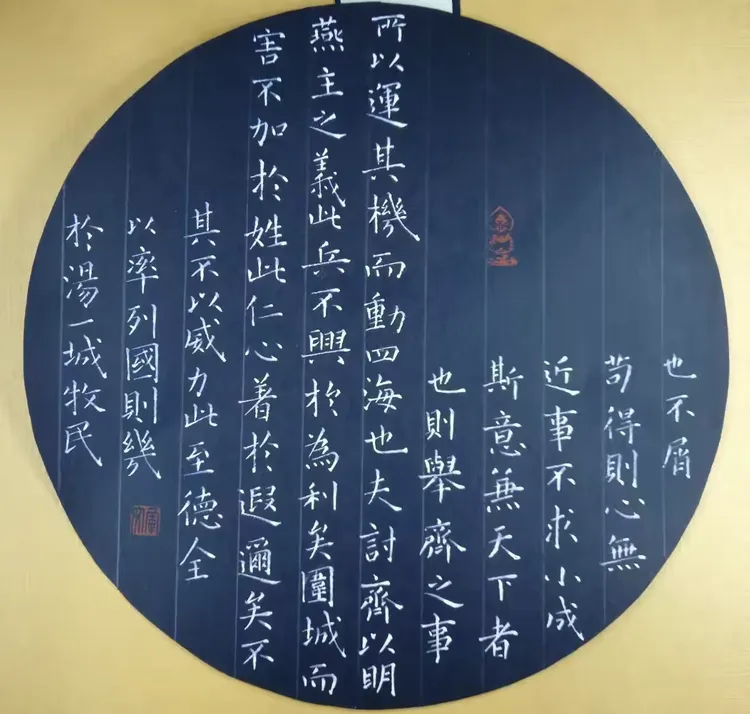 也不屑
苟得則心無
近事不求小成
斯意兼天下者
也則舉齊之事
所以運其機而動四海也夫討齊以明
燕主之義此兵不興於為利矣圍城而
害不加於姓此仁心著於遐邇矣不
其不以威力此至德全
以率列國則幾
於湯一城牧民